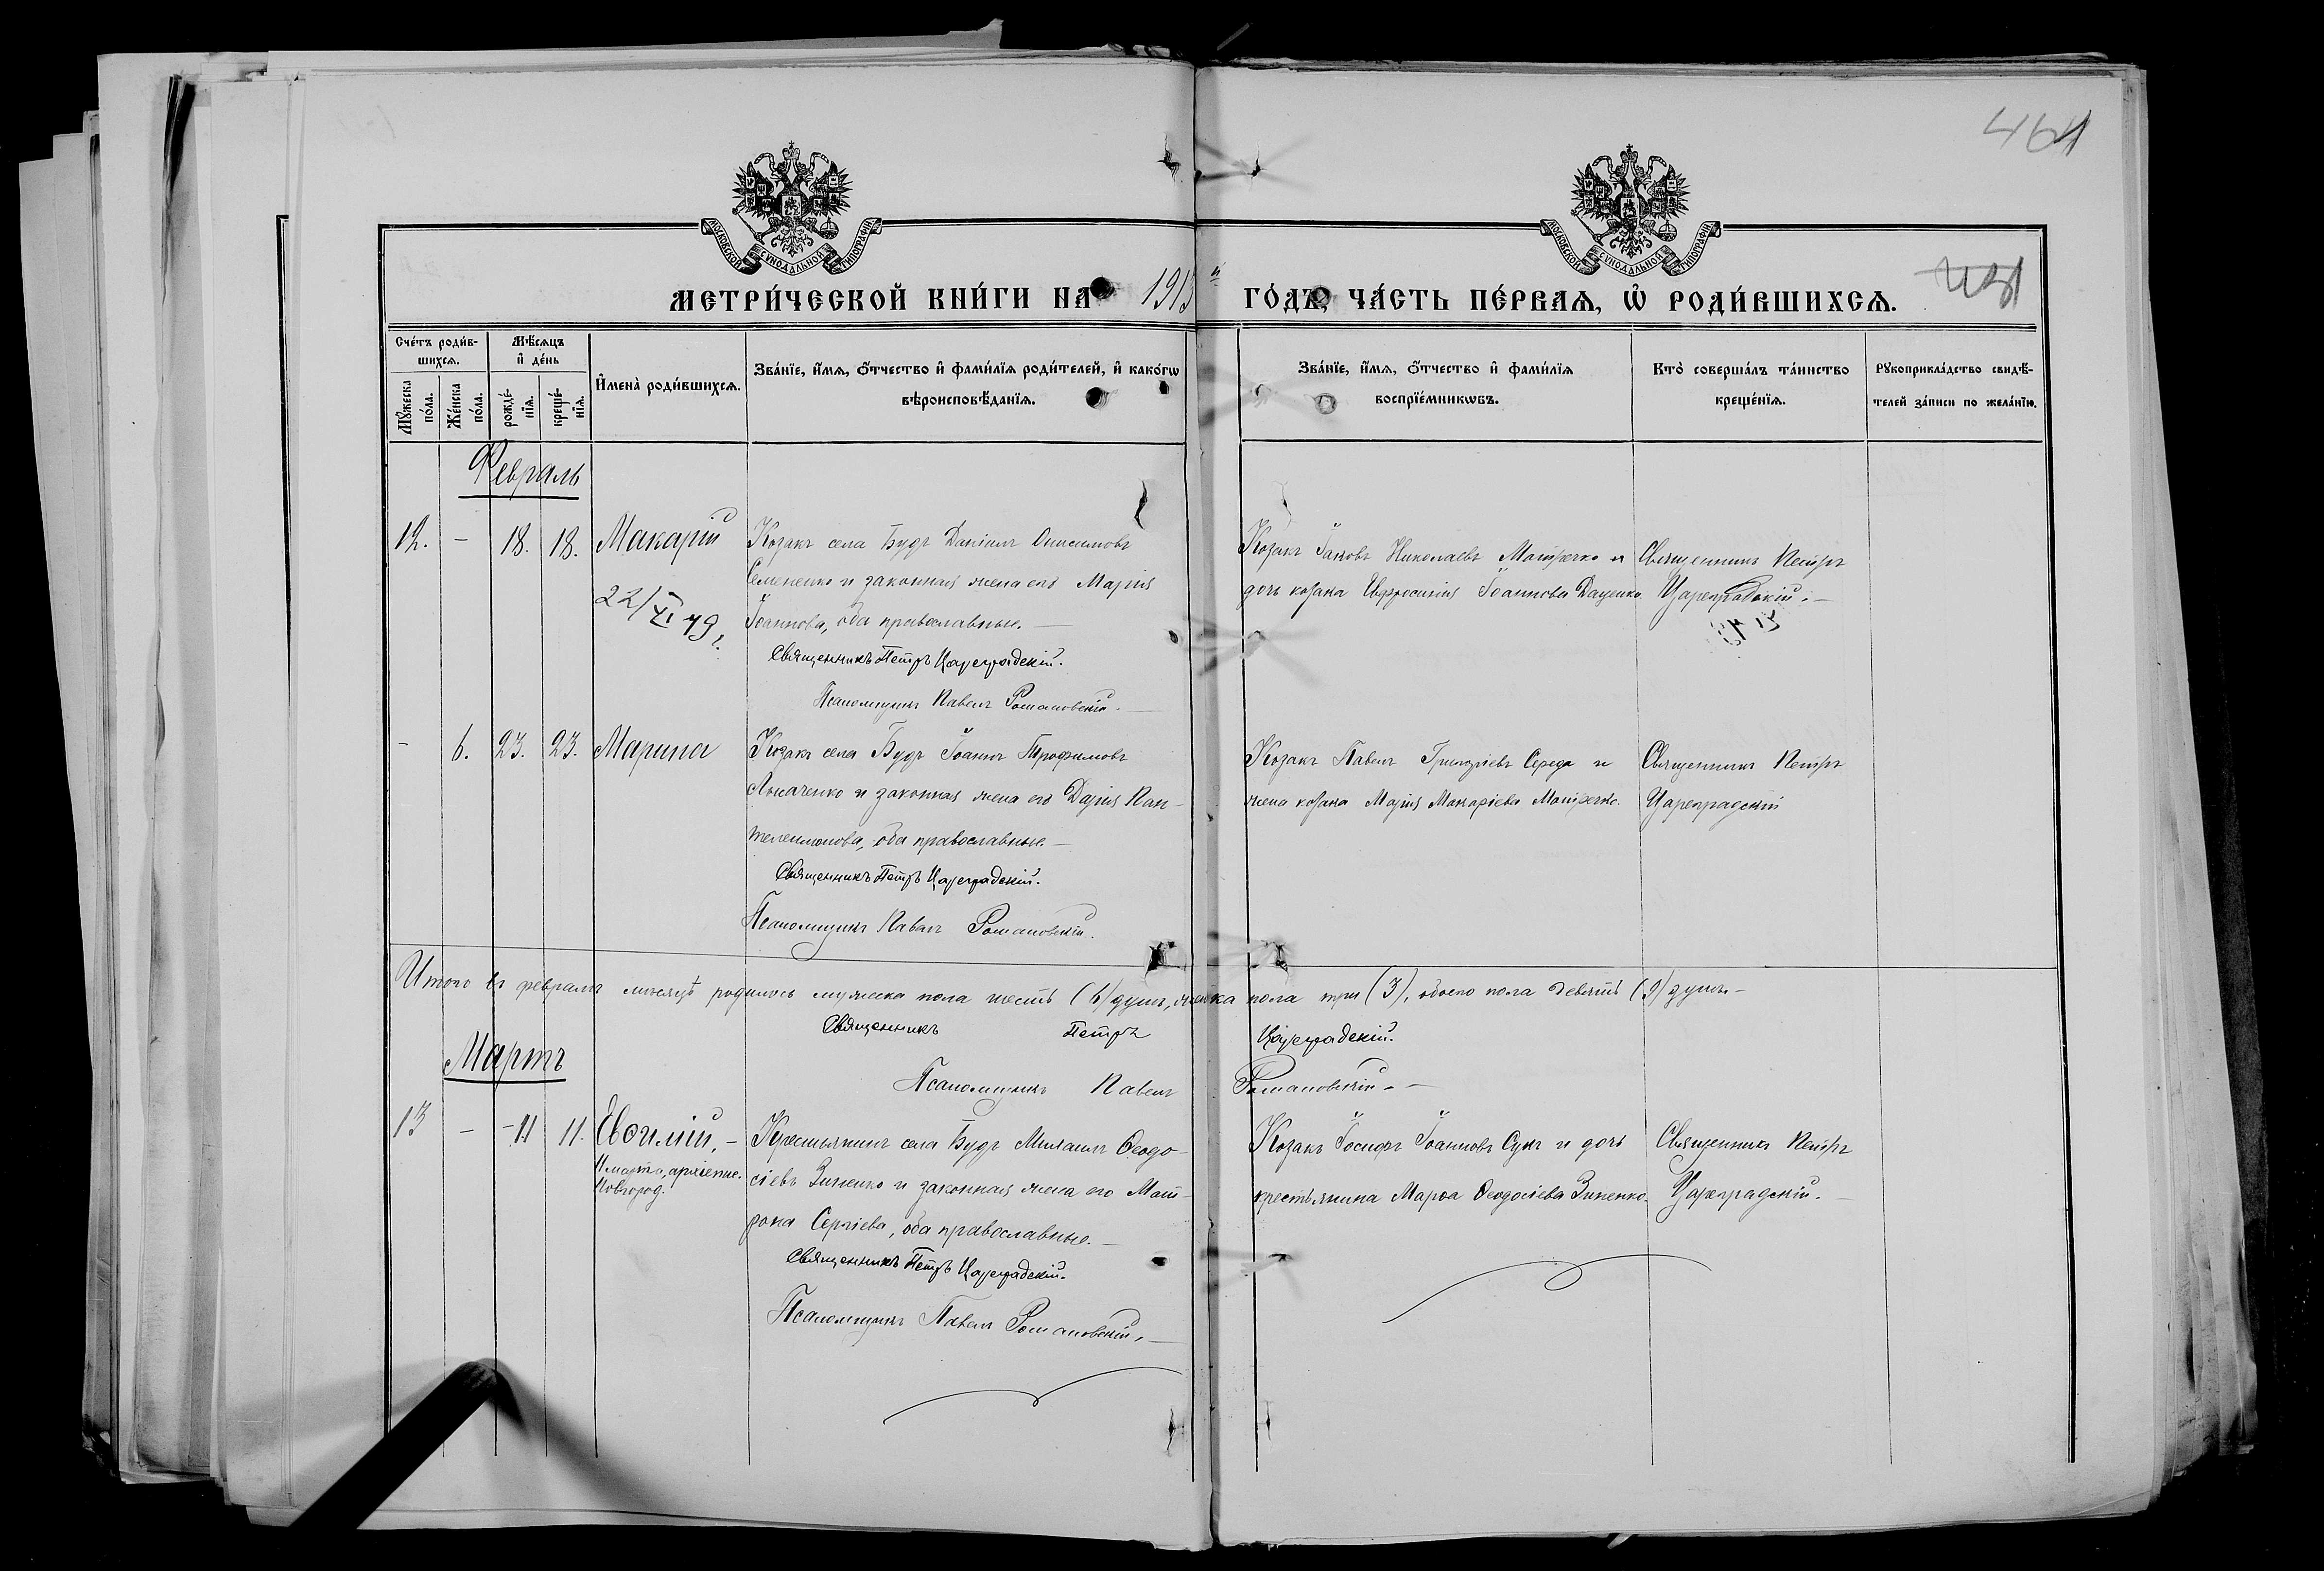 461
МОСКОВСКОЙ СѴНОДАЛЬНОЙ ТИПОГРАФІИ
МОСКОВСКОЙ СѴНОДАЛЬНОЙ ТИПОГРАФІИ
МЕТРИ́ЧЕСКОЙ КНИ́ГИ НА 1913й ГО́ДЪ, ЧА́СТЬ ПЕ́РВАЯ, Ѡ҆ РОДИ́ВШИХСЯ.
Сче́тъ роди́в-
шихся.
Мѣ́сяцъ
и҆ де́нь
Мꙋ́жеска по́ла.
Же́нска по́ла.
рожде́-
нїя.
креще́-
нїя.
И҆мена̀ роди́вшихся.
Зва́нїе, и҆́мя, ѻ҆́тчество и҆ фами́лїя роди́телей, и҆ како́гѡ
вѣроисповѣ́данїя.
Зва́нїе, и҆́мя, ѻ҆́тчество и҆ фами́лїя
воспрїе́мникѡвъ.
Кто̀ соверша́лъ та́инство
креще́нїя.
Рꙋкоприкла́дство свидѣ́-
телей за́писи по жела́нїю.
Февраль
12. - 18. 18. Макарій
22/XI 79 г.
Козакъ села Будъ Даніилъ Онисимовъ
Семененко и законная жена его Марія
Іоаннова, оба православные.—
Священникъ Петръ Цареградскій.
Псаломщикъ Павелъ Романовскій.—
Козакъ Іаковъ Николаевъ Матречко и
дочь козака Евфросинія Іоаннова Даценко.
Священникъ Петръ
Цареградскій.—
- 6. 23. 23. Марина
Козакъ села Будъ Іоаннъ Трофимовъ
Логаченко и законная жена его Дарія Пан-
телеимонова, оба православные.—
Священникъ Петръ Цареградскій.
Псаломщикъ Павелъ Романовскій.
Козакъ Павелъ Григоріевъ Середа и
жена козака Марія Макаріева Матречко.
Священникъ Петръ
Цареградскій
Итого въ февралѣ мѣсяцѣ родилось мужеска пола шесть (6) душъ, женска пола три (3), обоего пола девять (9) душъ.—
Священникъ Петръ Цареградскій.
Псаломщикъ Павелъ Романовскій.—
Мартъ
13 - 11 11. Евѳимій,—
11 марта, архіепис.
Новгород.
Крестьянинъ села Будъ Михаилъ Ѳеодо-
сіевъ Зиненко и законная жена его Мат-
рона Сергіева, оба православные.—
Священникъ Петръ Цареградскій.
Псаломщикъ Павелъ Романовскій.—
Козакъ Іосифъ Іоанновъ Сукъ и дочь
крестьянина Марѳа Ѳеодосіева Зиненко.
Священникъ Петръ
Цареградскій.—